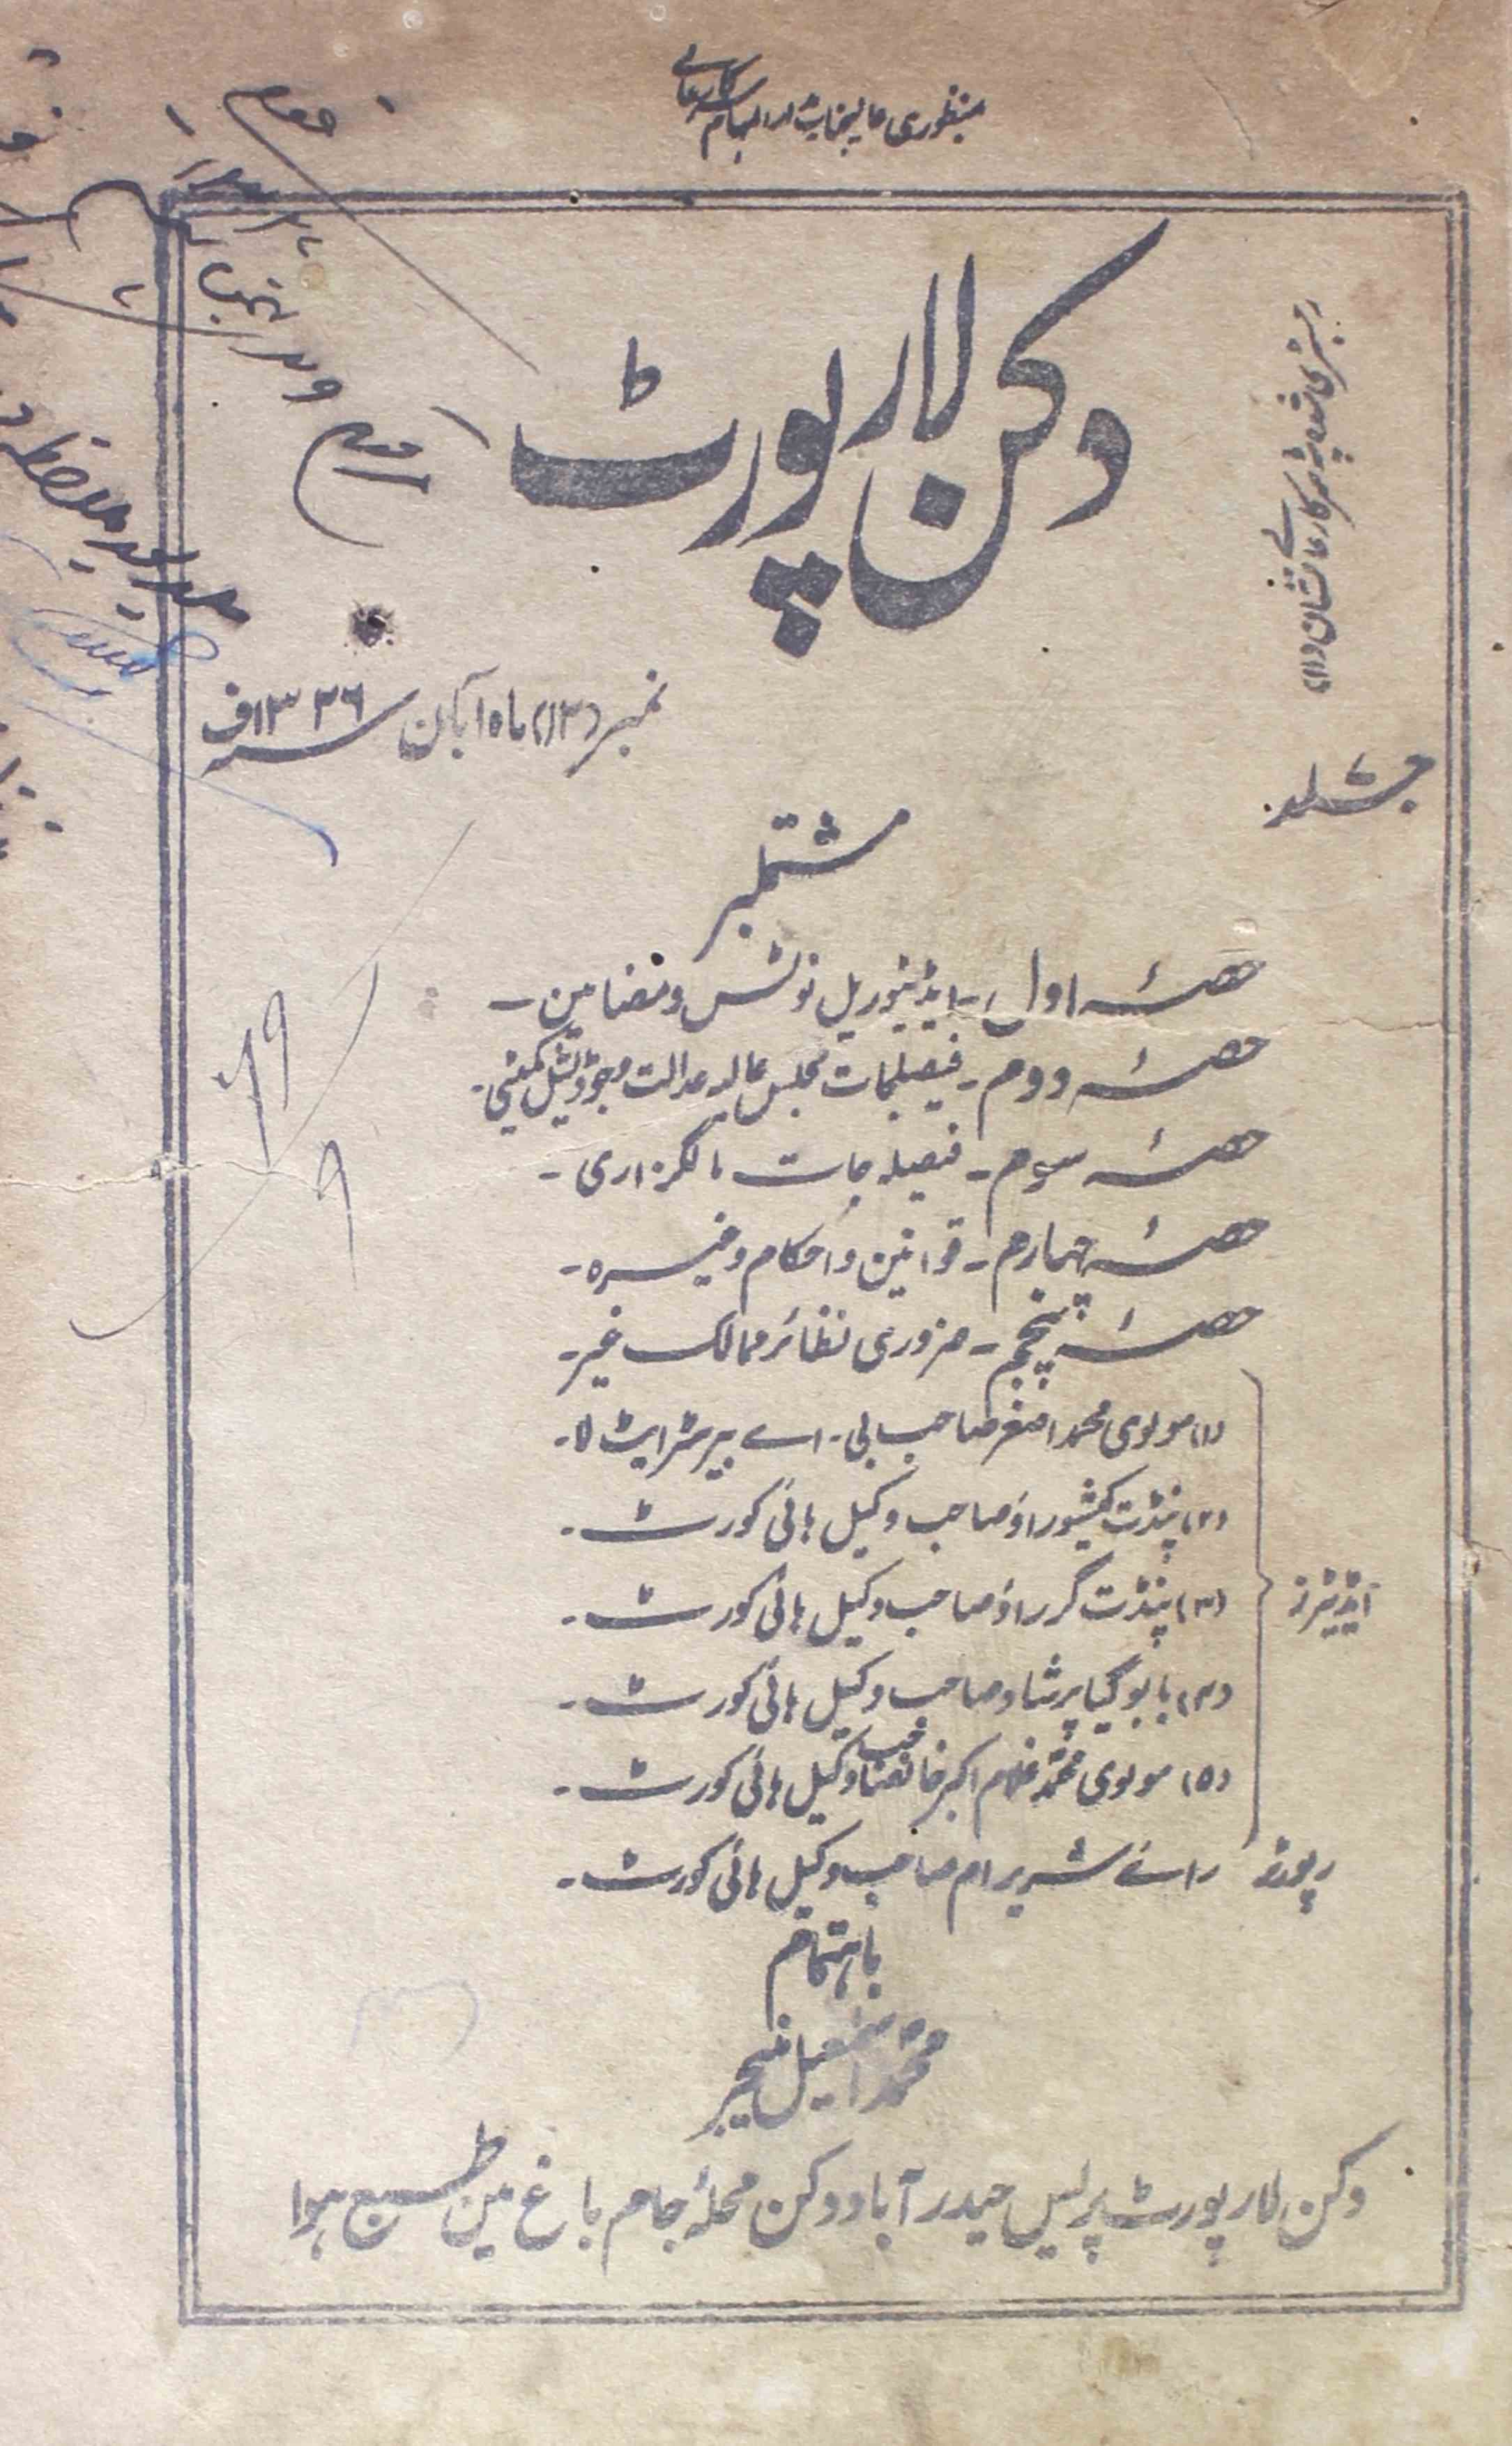 بمنظوری عالیجناب مدارالمہام سرکارعالی
دکن لا رپورٹ
جلد ۷
نمبر (۱۲) ماہ آبان سنہ ۱۳۲۶ف
مشتملبر
حصۂ اول ۔ ایڈیٹوریل نوٹس و مضامین ۔
حصۂ دوم ۔ فیصلجات مجلس عالیہ عدالت و جوڈیشل کمیٹی ۔
حصۂ سوم ۔ فیصلہ جات مالگزاری ۔
حصۂ چہارم ۔ قوانین و احکام وغیرہ ۔
حصۂ پنجم ۔ ضروری نظائر ممالک غیر ۔
ایڈیٹرز
(۱) مولوی محمد اصغر صاحب بی ۔ اے بیرسٹر ایٹ لا ۔
(۲) پنڈت کیشو راؤ صاحب وکیل ہائی کورٹ ۔
(۳) پنڈت گرراؤ صاحب وکیل ہائی کورٹ ۔
(۴) بابو گیا پرشاد صاحب وکیل ہائی کورٹ ۔
(۵) مولوی محمد غلام اکبر خانصاحب وکیل ہائی کورٹ ۔
رپورٹر رائے شریرام صاحب وکیل ہائی کورٹ ۔
باہتمام
محمد اسمعیل منیجر
دکن لا رپورٹ پریس حیدرآباد دکن محلۂ جام باغ مین طبع ہوا